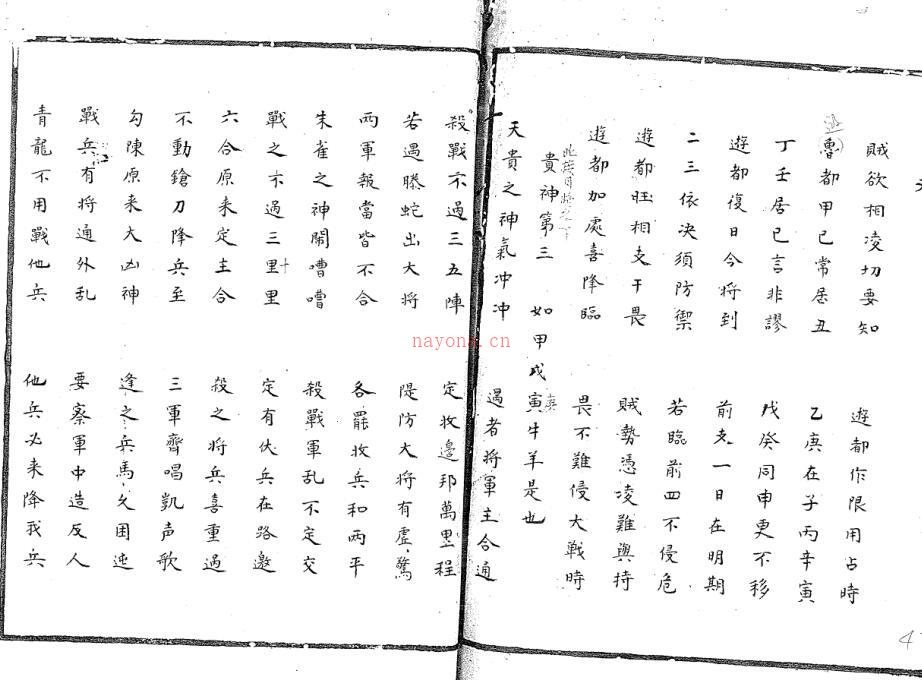 賊欲相凌切要知 遊都作限用占時
魯都甲己常居丑 乙庚在子丙辛寅
丁壬居巳言非謬 戊癸同申更不移
遊都復日今將到 前支一日在明期
二三依決須防禦 若臨前四不侵危
遊都旺相支干畏 賊勢憑凌難與持
遊都加處喜降臨 畏不難侵大戰時
貴神第三 如甲戊寅牛羊是也
庚
天貴之神氣冲冲 遇者將軍主合通
殺戰不過三五陣 定收邊邦萬里程
若遇螣蛇出大將 隄防大將有虛驚
兩軍報當皆不合 各罷收兵和兩平
朱雀之神鬧嘈嘈 殺戰軍乱不定交
戰之不過三里里 定有伏兵在路邀
十
六合原来定主合 殺之將兵喜重過
不動鎗刀降兵至 三軍齊唱凱声歌
勾陳原来大凶神 逢之兵馬久困迍
戰兵有將通外乱 要察軍中造反人
青龍不用戰他兵 他兵必来降我兵
nayona.cn
4